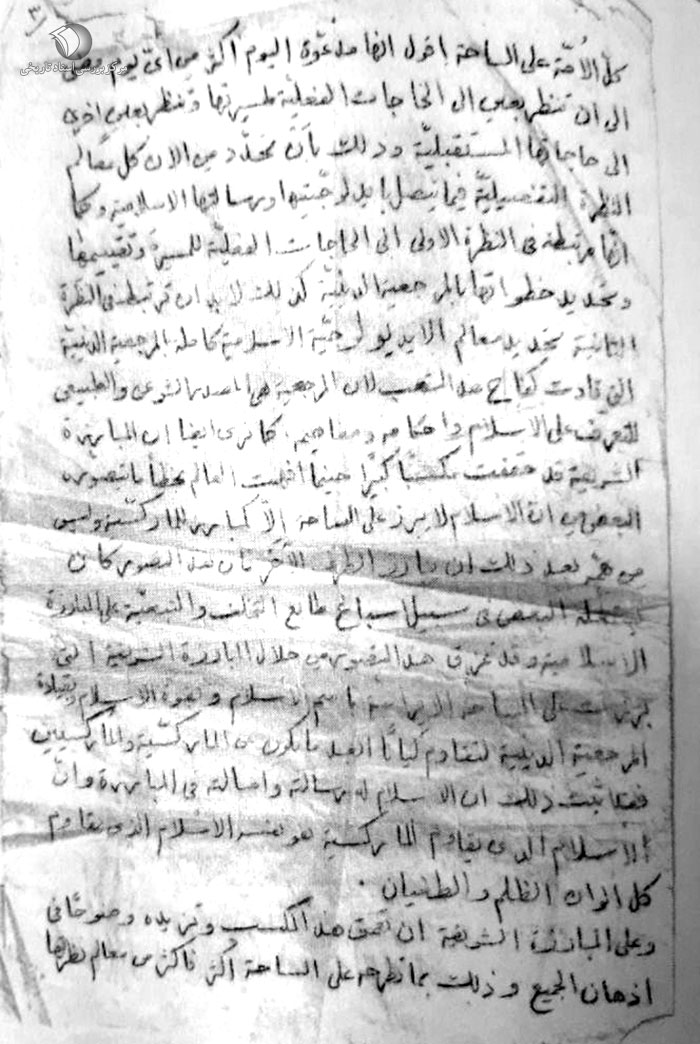 ٣
مرکز بررسی اسناد تاریخی
كلّ الأمّة على الساحة اقول انها مدعوّة اليوم اكثر من ايّ يوم مضى
الى ان تنظر بعين الى الحاجات الفعليّة لمسيرتها وتنظر بعين اخرى
الى حاجاتها المستقبليّة وذلك بأن تحدّد من الآن كل معالم
النظرة التفصيليّة فيما يتصل بايدلوجيّتها ورسالتها الاسلامية وكما
انّها مرتبطة في النظرة الاولى الى الحاجات الفعليّة للمسيرة وتقييمها
وتحديد خطواتها بالمرجعية الدينيّة كذلك لابد ان ترتبط في النظرة
الثانية بتحديد معالم الايديولوجيّة الاسلامية كاملة بالمرجعية الدينيّة
التي قادت كفاح هذا الشعب لان المرجعية هي المصدر الشرعي والطبيعي
للتعرّف على الاسلام واحكامه ومفاهيمه. كما نرى ايضا ان المبارزة
الشريفة قد حققت مكسبًا كبيرًا حينما افهمت العالم بخطأ ما تصوره
البعض من انّ الاسلام لا يبرز على الساحة الّا كمبارز للماركسيّة وليس
من همّه بعد ذلك ان يبارز الطرف الآخر بان هذا التصور كان
يستغلّه البعض في سبيل اسباغ طابع التخلف والتبعيّة على المبارزة
الاسلامية وقد تمزق هذا التصور من خلال المبارزة الشريفة التي
برزت على الساحة الايرانية باسم الاسلام وبقوة الاسلام وبقيادة
المرجعية الدينية لتقاوم كيانًا ابعد ما يكون من الماركسيّة والماركسيين
فقد اثبت ذلك ان الاسلام له رسالته واصالته في المبارزة وانّ
الاسلام الذي يقاوم الماركسية هو نفس الاسلام الذي يقاوم
كل الوان الظلم والطغيان.
وعلى المبارزة الشريفة ان تعمق هذا المكسب وتزيده وضوحًا في
اذهان الجميع وذلك بما تطرحه على الساحة اكثر فاكثر من معالم نظرتها